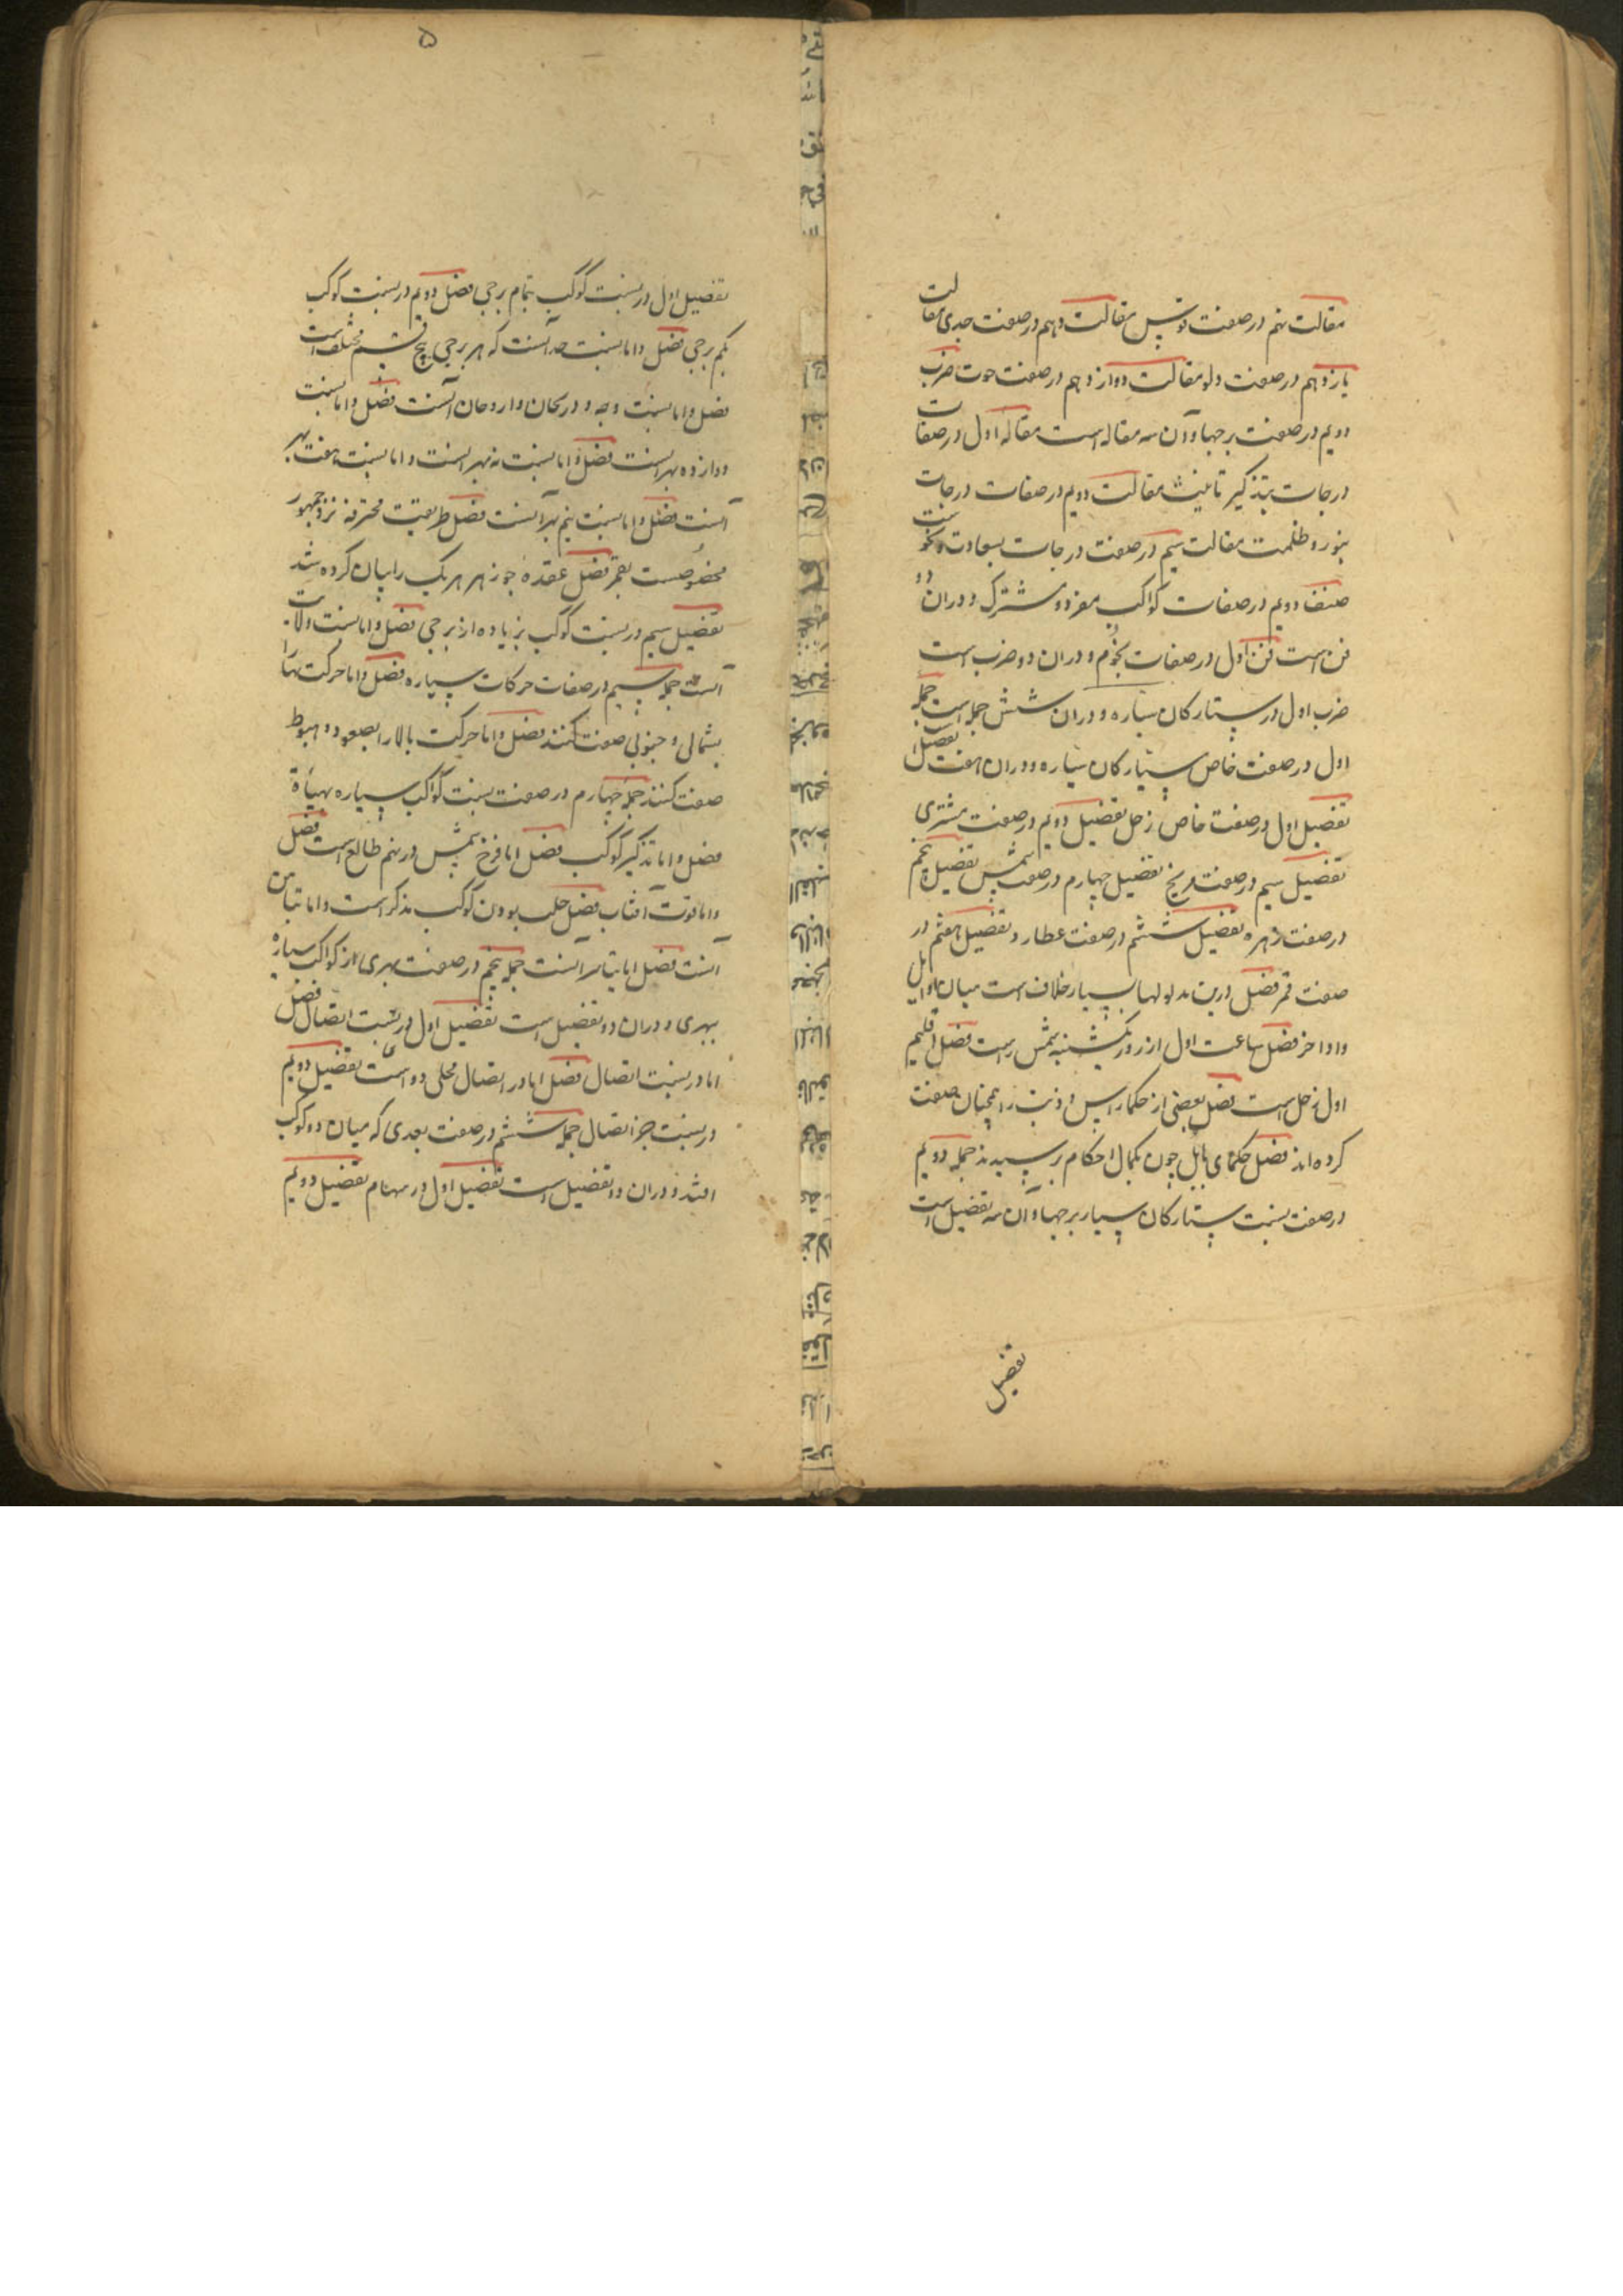 مقالت نهم در صفت قوس مقالت دهم در صفت جدی مقالت
یازدهم در صفت دلو مقالت دوازدهم در صفت حوت ضرب
دویم در صفت برجها و آن سه مقاله است مقاله اول در صفات
درجات بتذکیر تانیث مقالت دویم در صفات درجات
بنور و ظلمت مقالت سیم در صفت درجات بسعادت و نحوست
صنف دویم در صفات کواکب مفرد و مشترک و دران دو
فن است فن اول در صفات نجوم و دران دو ضرب است
ضرب اول در ستارکان سیاره و دران شش جمله است جمله
اول در صفت خاص ستارکان سیاره و دران هفت تفصیل
تفصیل اول در صفت خاص زحل تفصیل دویم در صفت مشتری
تفصیل سیم در صفت مریخ تفصیل چهارم در صفت شمس تفصیل پنجم
در صفت زهره تفصیل ششم در صفت عطارد تفصیل هفتم در
صفت قمر فضل درین مدلولها بسیار خلاف است میان اوایل
و اواخر فضل ساعت اول از روز یکشنبه شمس راست فضل اقلیم
اول زحل است فضل بعضی از حکما راس و ذنب را همچنان صفت
کرده اند فضل حکمای بابل چون بکمال احکام برسیدند جمله دویم
در صفت نسبت ستارکان سیار ببرجها و آن سه تفصیل است
تفصیل
۵
تفصیل اول در نسبت کوکب بتمام برجی فضل دویم در نسبت کوکب
بکم برجی فضل و اما نسبت حد آنست که هر برجی پنج قسم مختلف است
فضل و اما نسبت وجه و دریجان و اروجان آنست فضل و اما نسبت
دوازده بهر انست فضل و اما نسبت نه بهر انست و اما نسبت هفت بهر
آنست فضل و اما نسبت نیم بهر آنست فضل طریقت محترقه نزد جمهور
مخصوصست بقمر فضل عقده جوزهر هر یک را بیان کرده شد
تفصیل سیم در نسبت کوکب بزیاده از برجی فضل و اما نسبت ولایت
آنست جمله سیم در صفات حرکات سیاره فضل و اما حرکت پهنا را
بشمالی و جنوبی صفت کنند فضل و اما حرکت بالا را بصعود و هبوط
صفت کنند جمله چهارم در صفت نسبت کواکب سیاره بهیأة
فضل و اما تذکیر کوکب فضل اما فرخ شمس در نهم طالع است فضل
و اما قوت آفتاب فضل حلب بودن کوکب مذکر است و اما تیامن
آنست فضل اما تیاسر آنست جمله پنجم در صفت بهری از کواکب سیاره
ببهری و دران دو تفصیل است تفصیل اول در نسبت اتصال فضل
اما در نسبت اتصال فضل اما در اتصال محلی دو است تفصیل دویم
در نسبت جز اتصال جمله ششم در صفت بعدی که میان دو کوکب
افتد و دران دو تفصیل است تفصیل اول در سهام تفصیل دویم